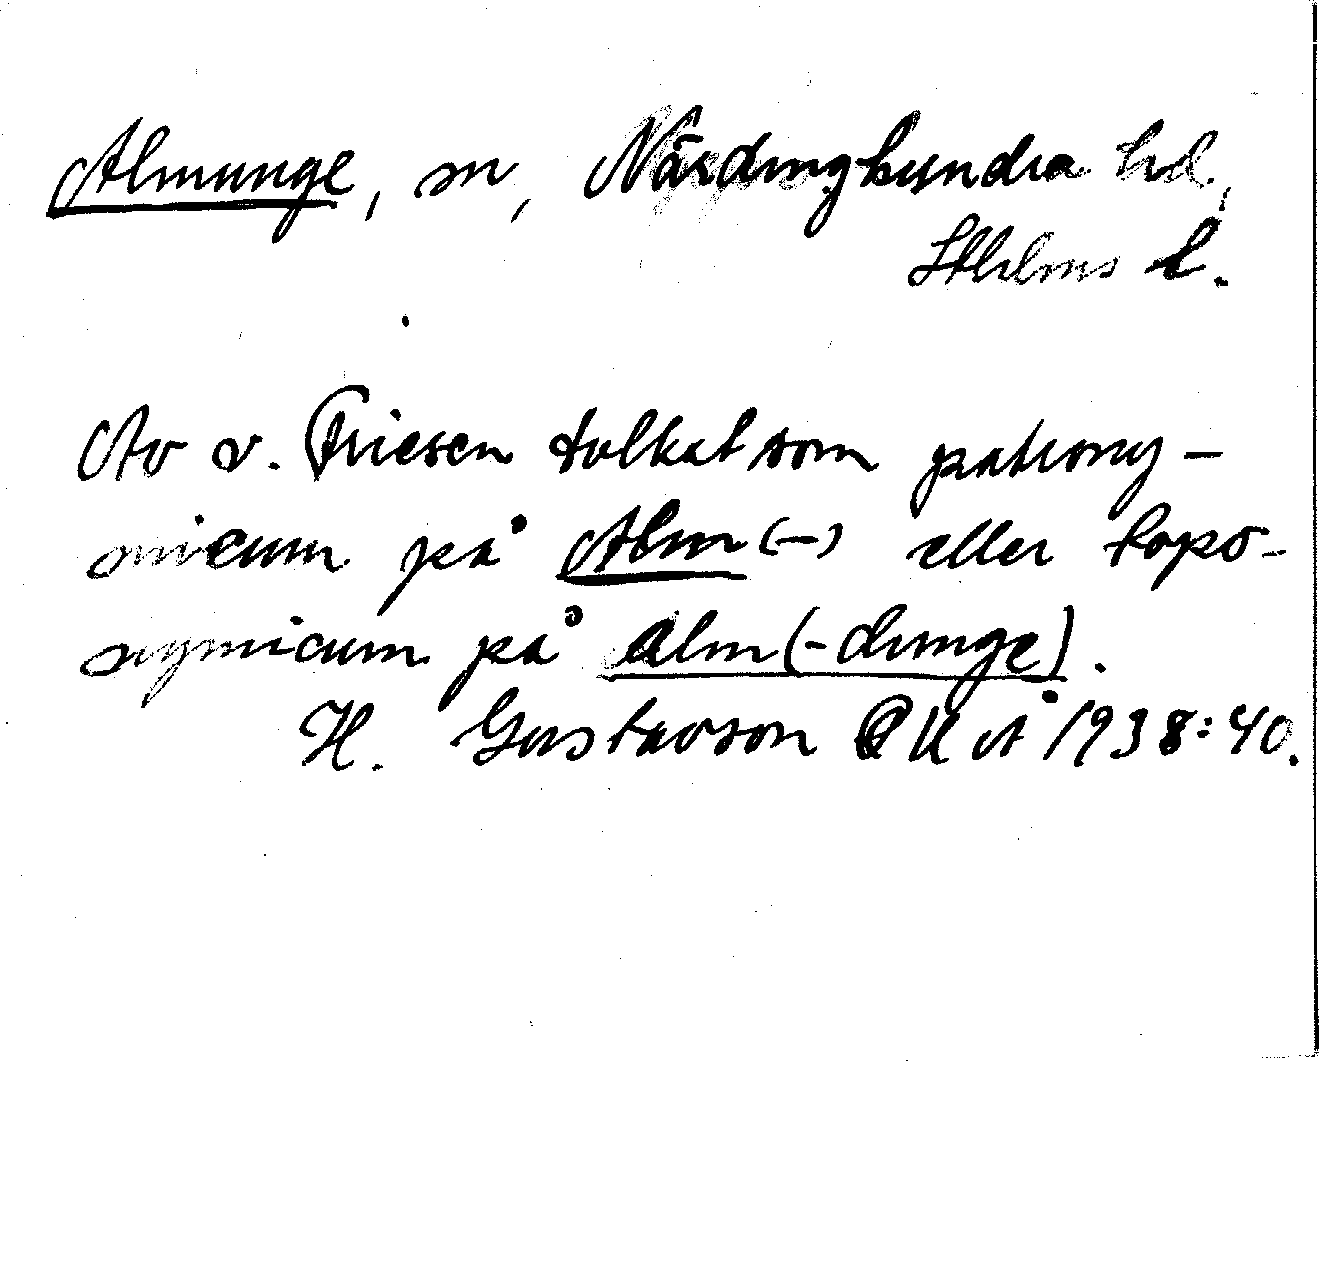 Almunge, sn, Närdinghundra hd,
Sthlms l.
Av v. Friesen tolkat som patrony-
micum på Alm(-) eller topo-
nymicum på alm(-dunge).
H. Gustavson OUÅ 1938:40.